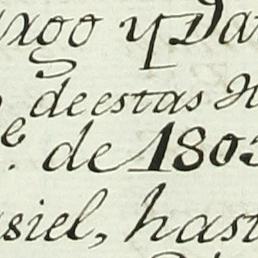 argo y Dat
de estas H
e. de 1803
siel, hast